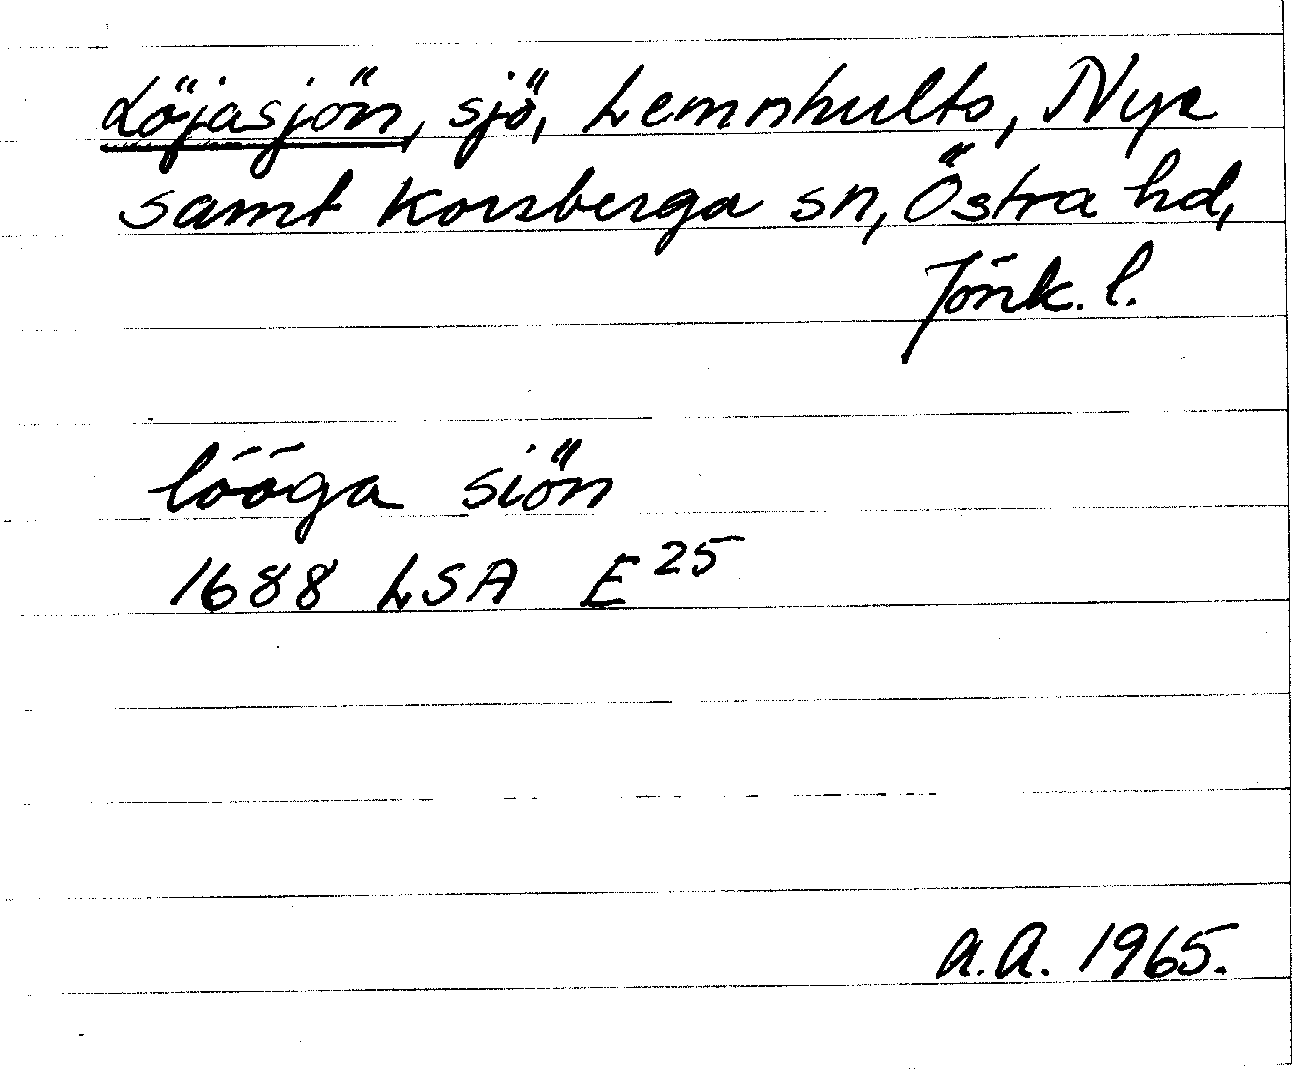 Löjasjön, sjö, Lemnhults, Nye
samt Korsberga sn, Östra hd,
Jönk. l.
lööga siön
1688 LSA E 25
A.A. 1965.